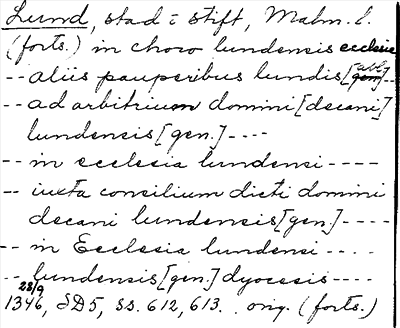 Lund, stad i stift, Malm. l.
(forts.) in choro lundensis ecclesie
-- aliis pauperibus lundis [abl.] --
-- ad arbitrium domini [decani]
lundensis [gen.] ----
-- in ecclesia lundensi ----
-- iuxta consilium dicti domini
decani lundensis [gen.] ----
-- in Ecclesia lundensi ----
-- lundensis [gen.] dyocesis ----
28/9
1346, SD5, ss. 612, 613. orig. (forts.)